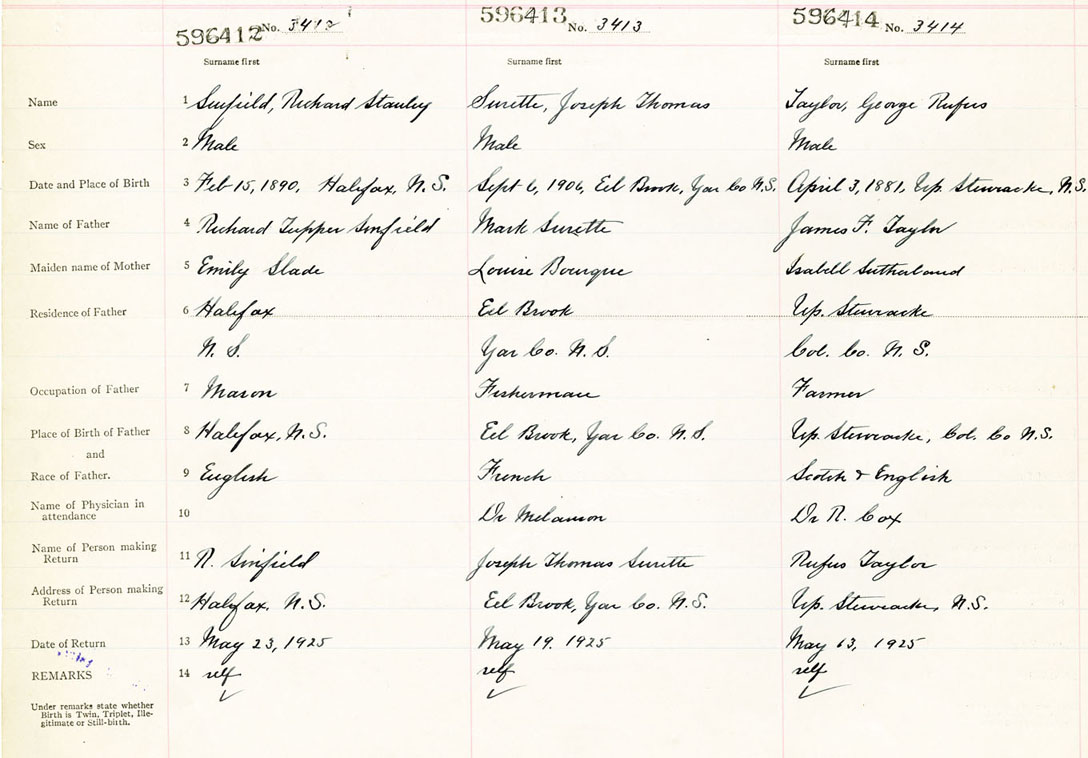 596412 No. 3412 596413 No. 3413 596414 No. 3414
Surname first Surname first Surname first
Name 1 Sinfield, Richard Stanley Surette, Joseph Thomas Taylor, George Rufus
Sex 2 Male Male Male
Date and Place of Birth 3 Feb 15, 1890, Halifax, N.S. Sept 6, 1906, Eel Brook, Yar Co N.S. April 3, 1881, Up. Stewiacke, N.S.
Name of Father 4 Richard Tupper Sinfield Mark Surette James F. Taylor
Maiden name of Mother 5 Emily Slade Louise Bourque Isabell Sutherland
Residence of Father 6 Halifax Eel Brook Up. Stewiacke
N. S. Yar Co. N. S. Col. Co. N. S.
Occupation of Father 7 Mason Fisherman Farmer
Place of Birth of Father 8 Halifax, N.S. Eel Brook, Yar Co. N.S. Up. Stewiacke, Col. Co N.S.
and
Race of Father. 9 English French Scotch & English
Name of Physician in
attendance 10 Dr Melanson Dr R. Cox
Name of Person making
Return 11 R. Sinfield Joseph Thomas Surette Rufus Taylor
Address of Person making
Return 12 Halifax, N.S. Eel Brook, Yar Co. N.S. Up. Stewiacke, N.S.
Date of Return 13 May 23, 1925 May 19. 1925 May 1925
REMARKS 14 self self self
Under remarks state whether
Birth is Twin, Triplet, Ille-
gitimate or Still-birth.